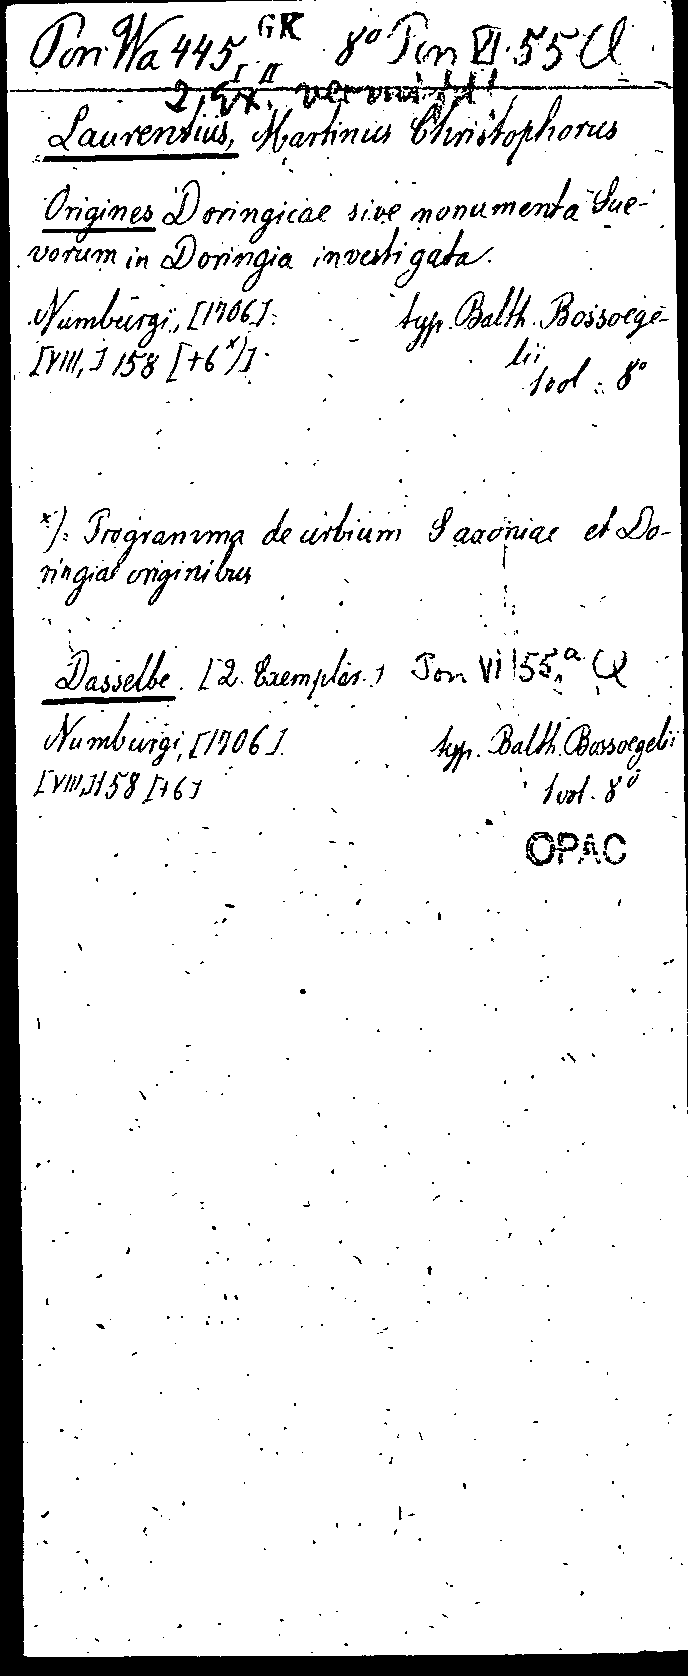 Pon Wa 445, I, II GK 8° Pon VI. 55 Q
2. Ex. vermißt!
Laurentius, Martinus Christophorus
Origines Doringicae sive monumenta Sue-
vorum in Doringia investigata.
Numburgi, [1706]. typ. Balth. Bossoege-
lii
[VIII,] 158 [+6 x)]. 1 vol. 8°
x). Programma de urbium Saxoniae et Do-
ringiae originibus
Dasselbe. [2. Exemplar.] Pon VI 55a Q
Numburgi, [1706]. typ. Balth. Bossoegelii
[VIII,] 158 [+6] 1 vol. 8°
OPAC